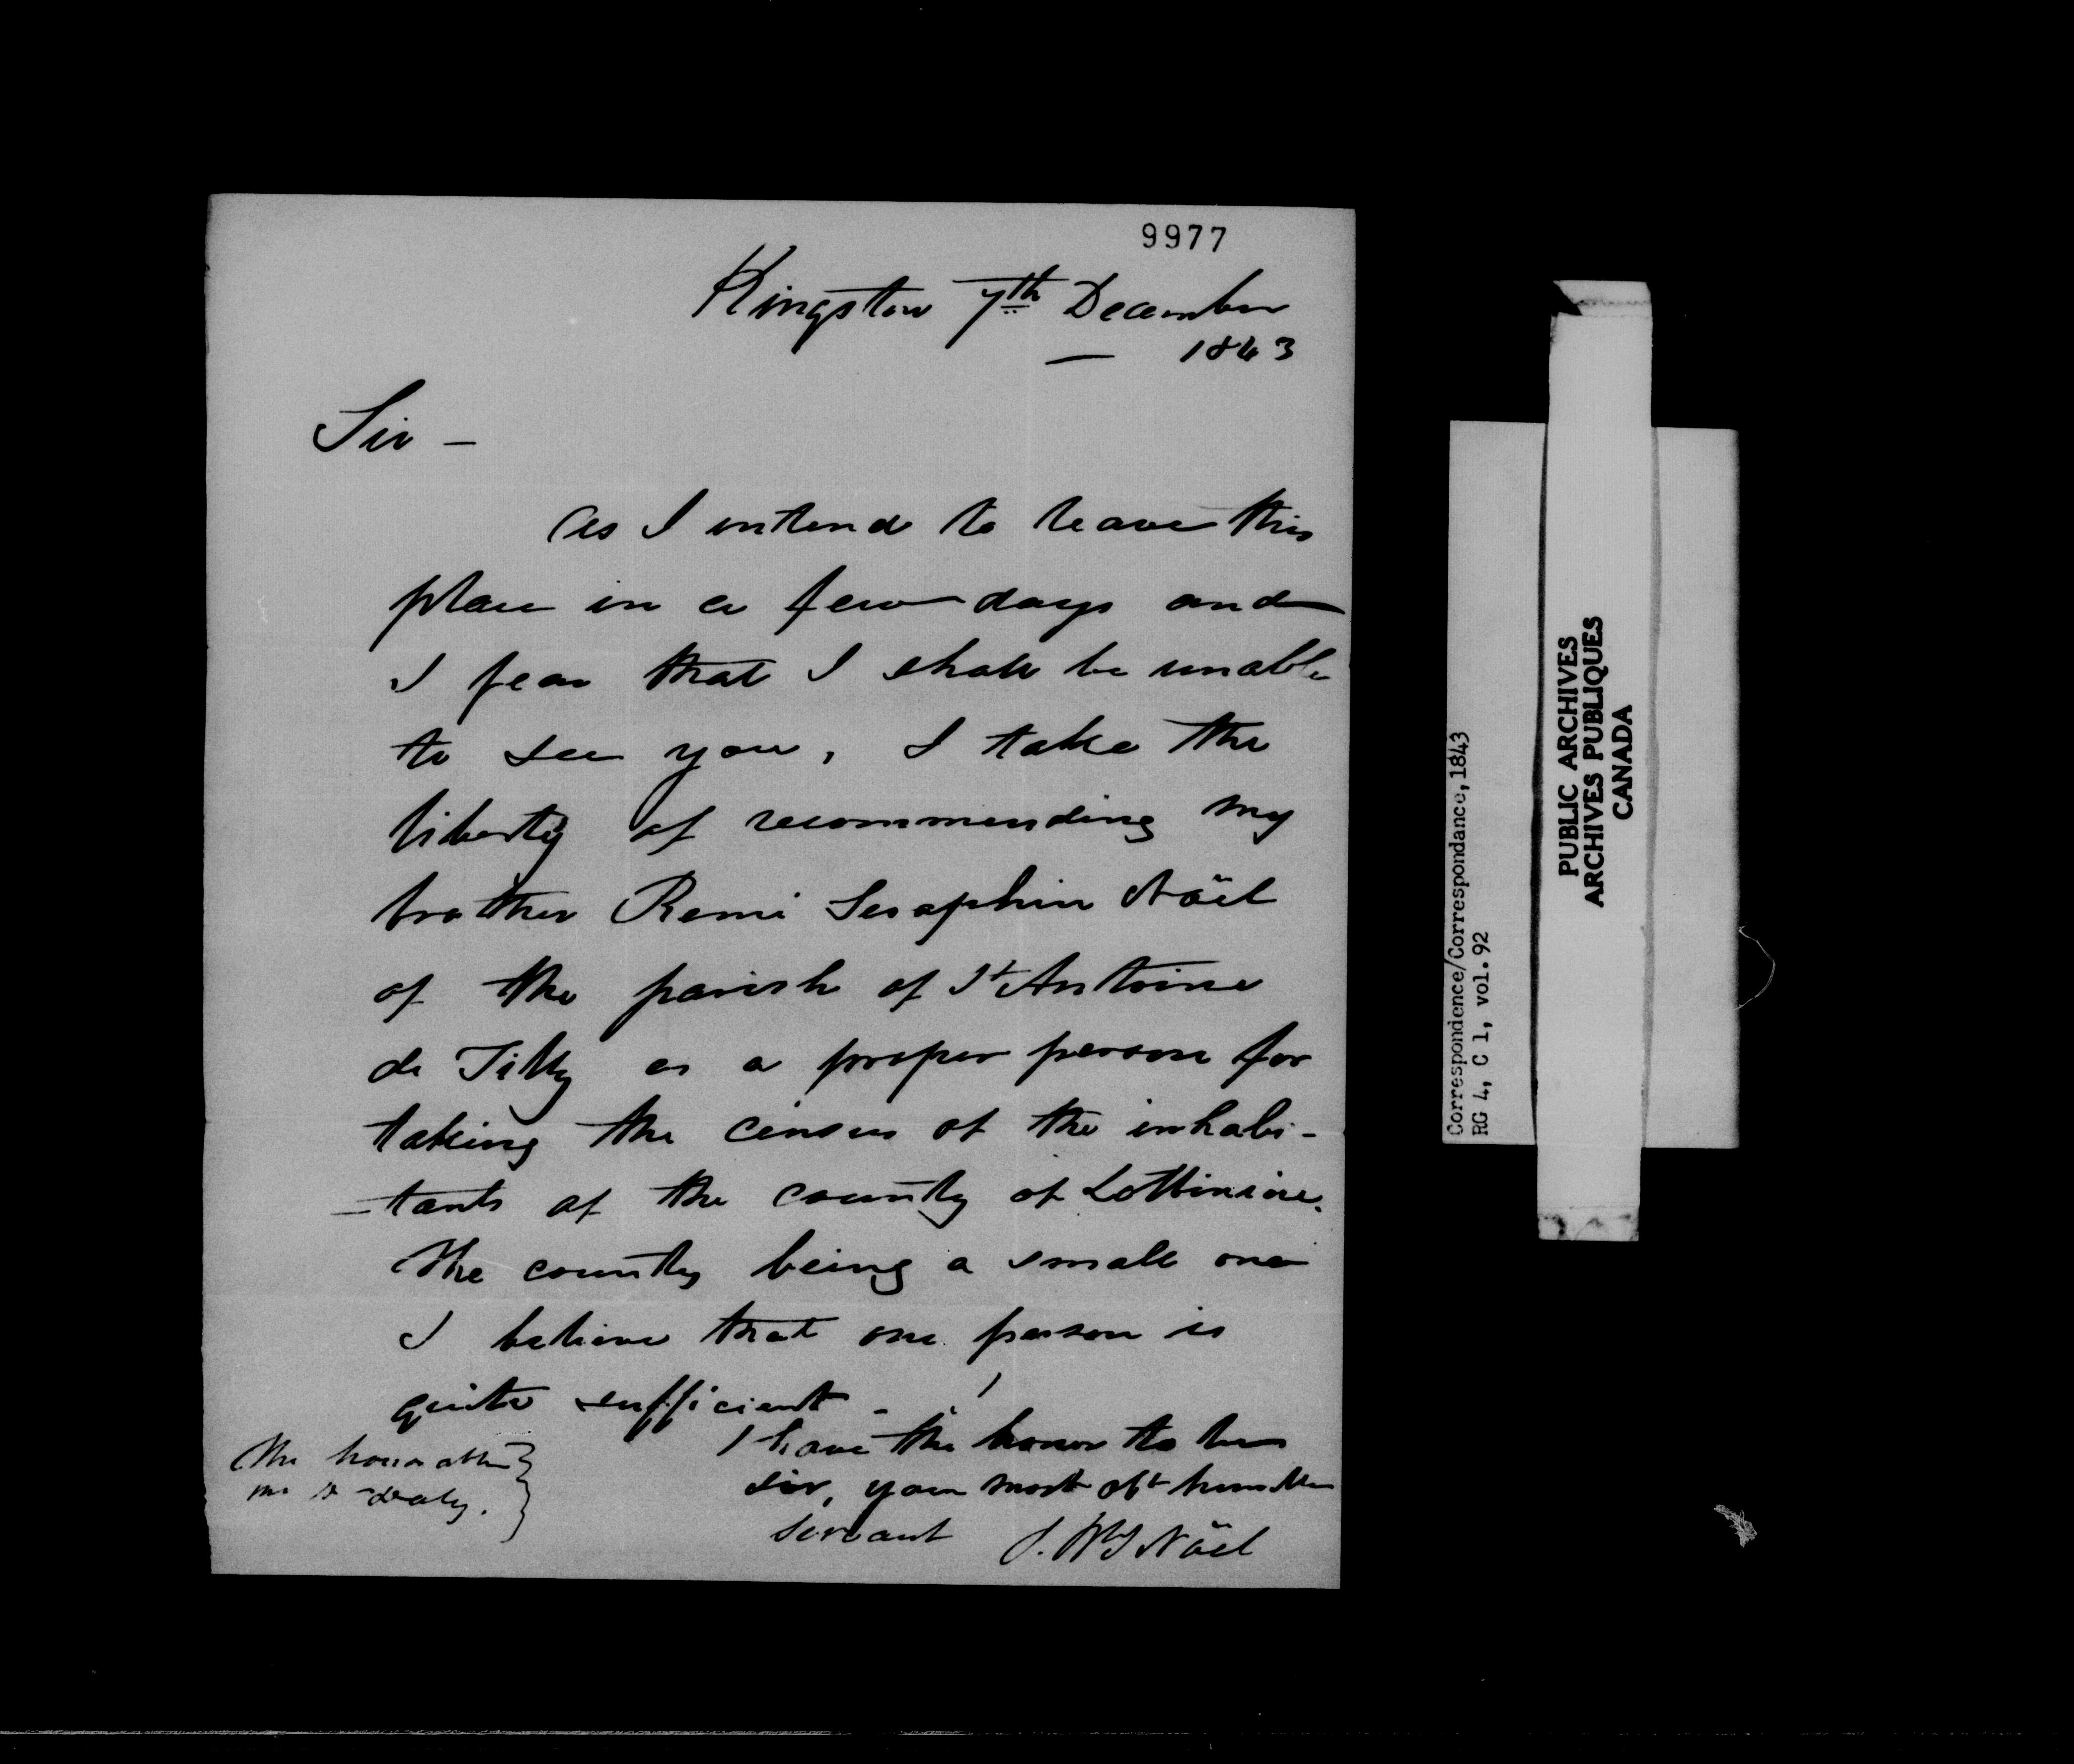 9977
Kingston 7th December
— 1843
Sir —
As I intend to leave this
place in a few days and
I fear that I shall be unable
to see you, I take the
liberty of recommending my
brother Remi Seraphin Nöel
of the parish of St Antoine
de Tilly as a proper person for
taking the census of the inhabi-
-tants of the county of Lotbiniere.
The county being a small one
I believe that one person is
quite sufficient -
I have the honor to be
sir, your most obt humble
servant J. Nöel
The honorable
Daly.
Correspondence/Correspondance, 1843
RG 4, C 1, vol. 92
PUBLIC ARCHIVES
ARCHIVES PUBLIQUES
CANADA